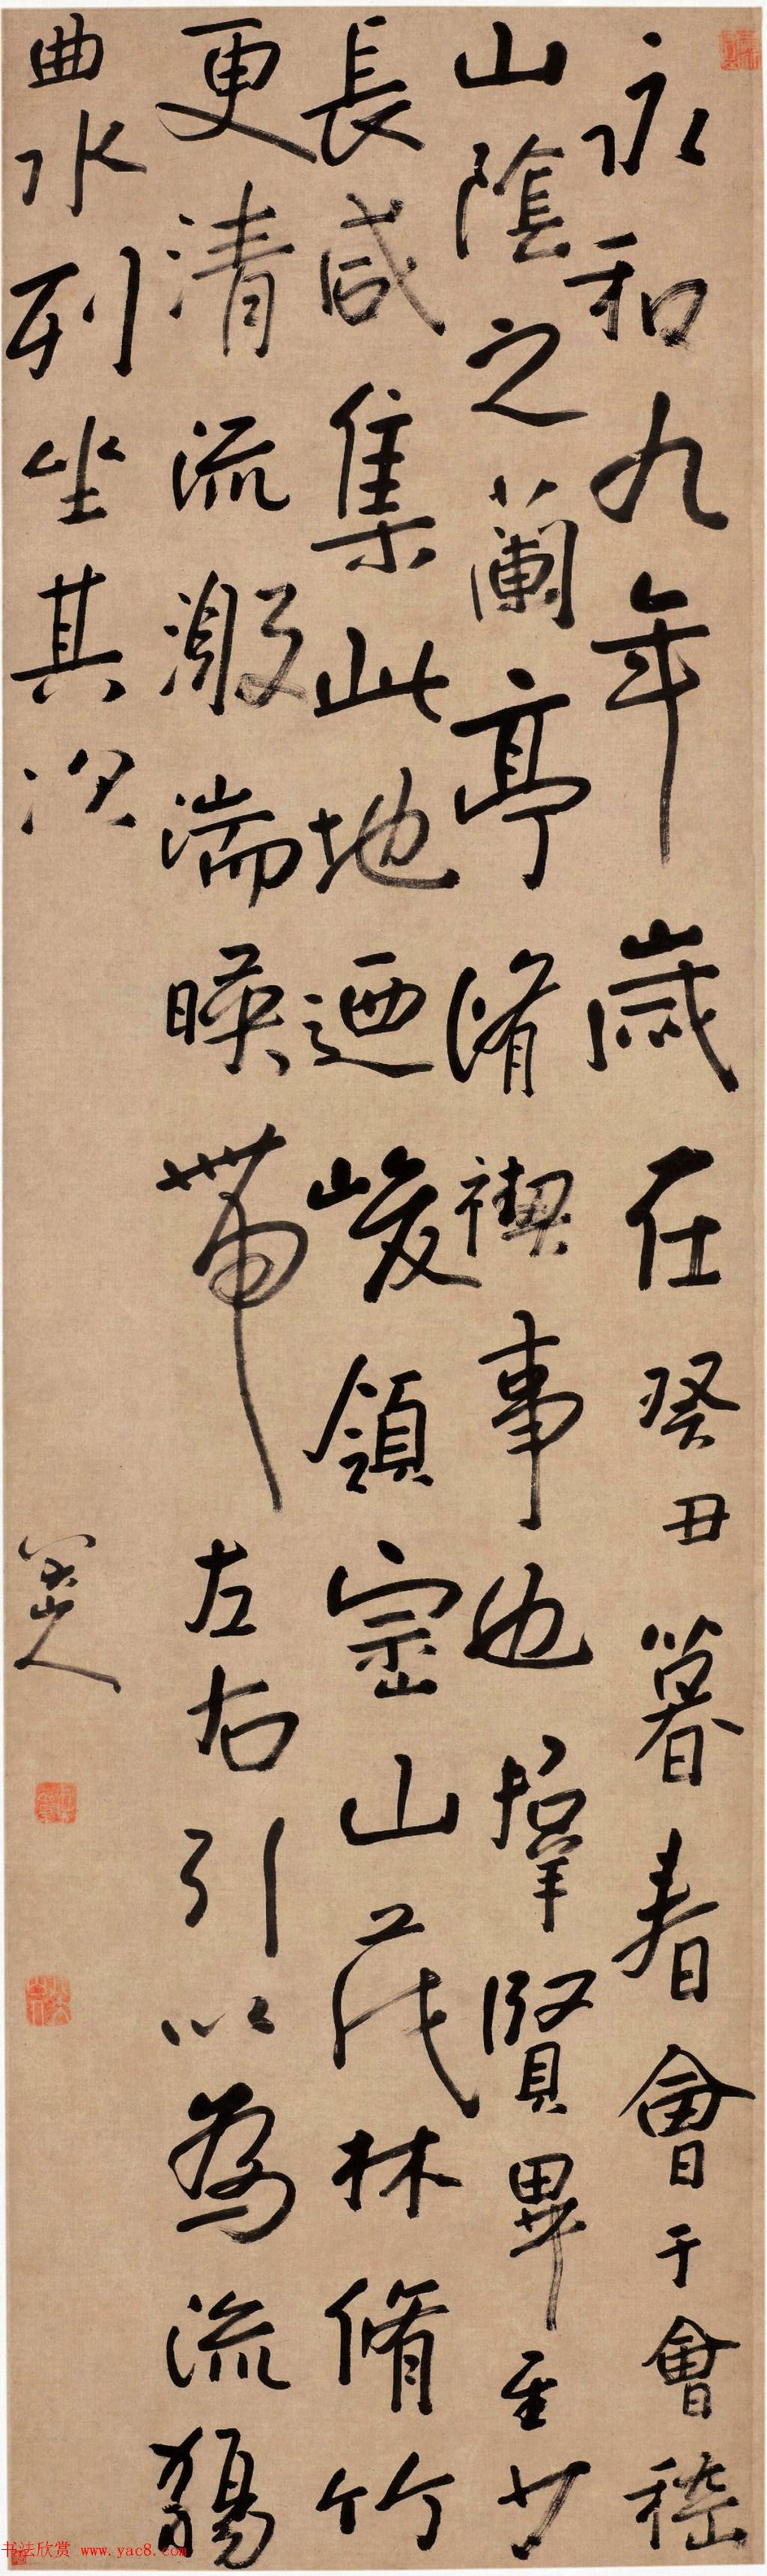 永和九年歲在癸丑暮春會于會稽
山陰之蘭亭脩禊事也羣賢畢至少
長咸集此地迺峻領崈山茂林脩竹
更清流激湍暎帶左右引以為流觴
曲水列坐其次
八大山人
书法欣赏 www.yac8.com